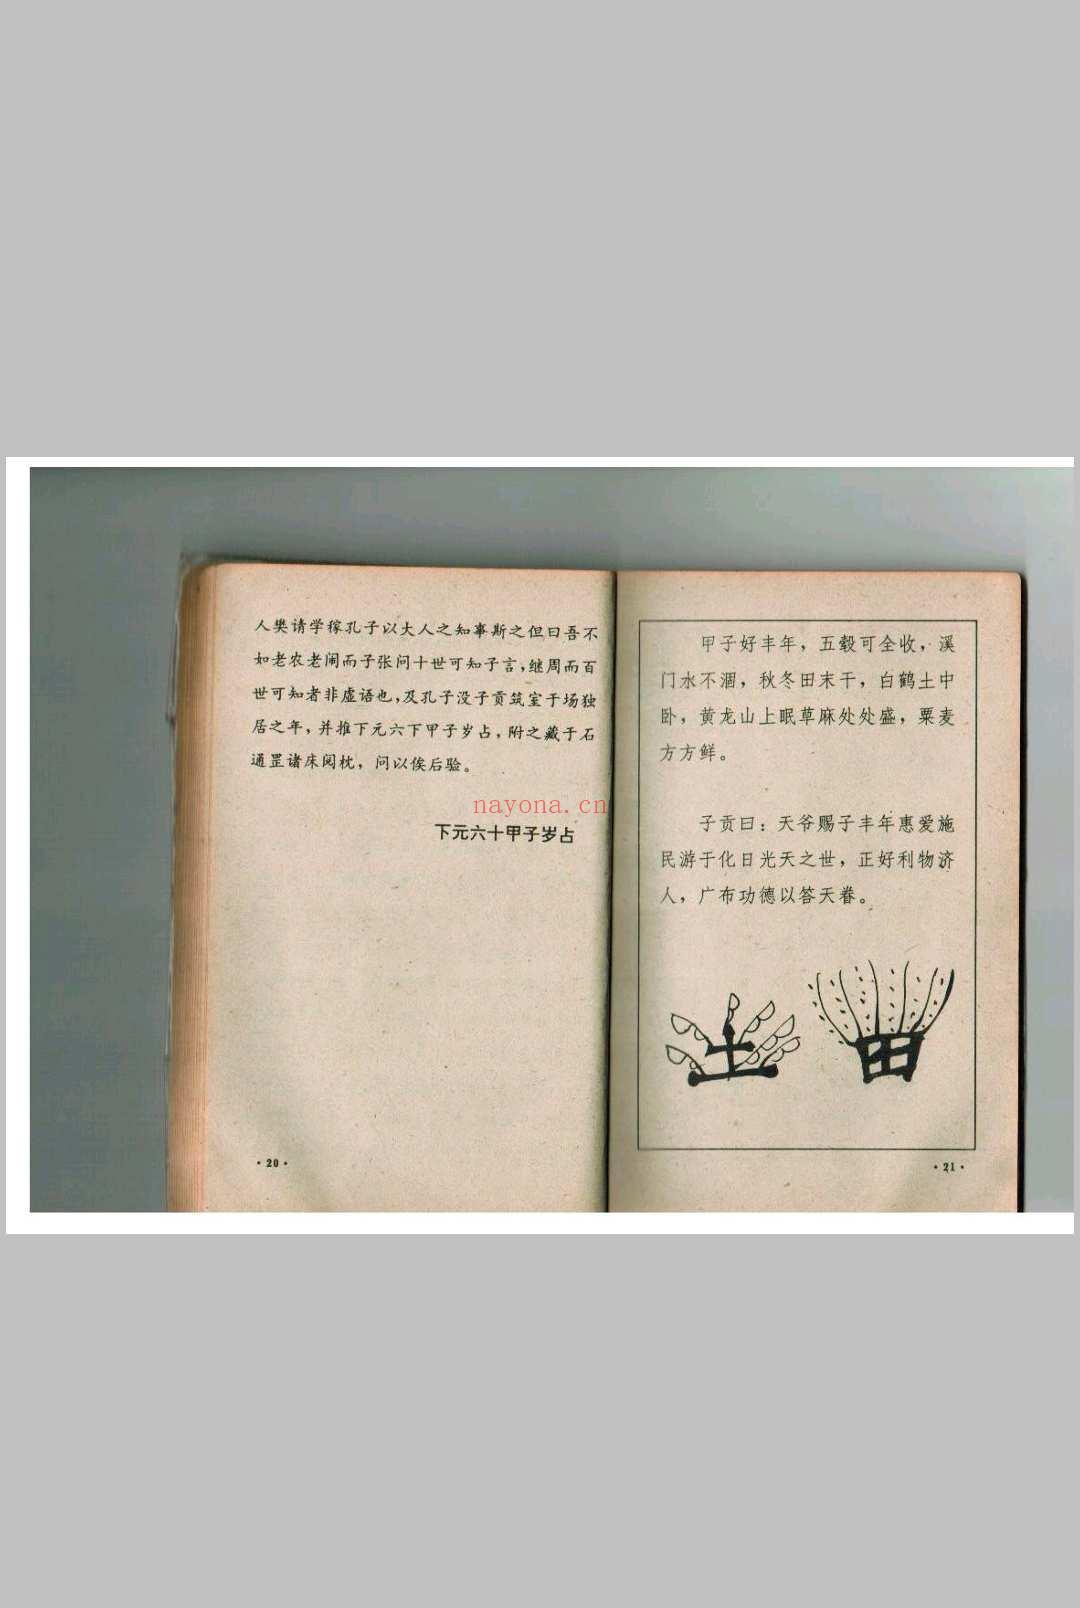 人樊请学稼孔子以大人之知事斯之但曰吾不
如老农老闹而子张问十世可知子言，继周而百
世可知者非虚语也，及孔子没子贡筑室于场独
居之年，并推下元六下甲子岁占，附之藏于石
通罡诸床阅枕，问以俟后验。
nayona.cn
下元六十甲子岁占
·20·
甲子好丰年，五毂可全收，溪
门水不涸，秋冬田末干，白鹤土中
卧，黄龙山上眠草麻处处盛，粟麦
方方鲜。
子贡曰：天爷赐子丰年惠爱施
民游于化日光天之世，正好利物济
人，广布功德以答天眷。
土
田
·21·